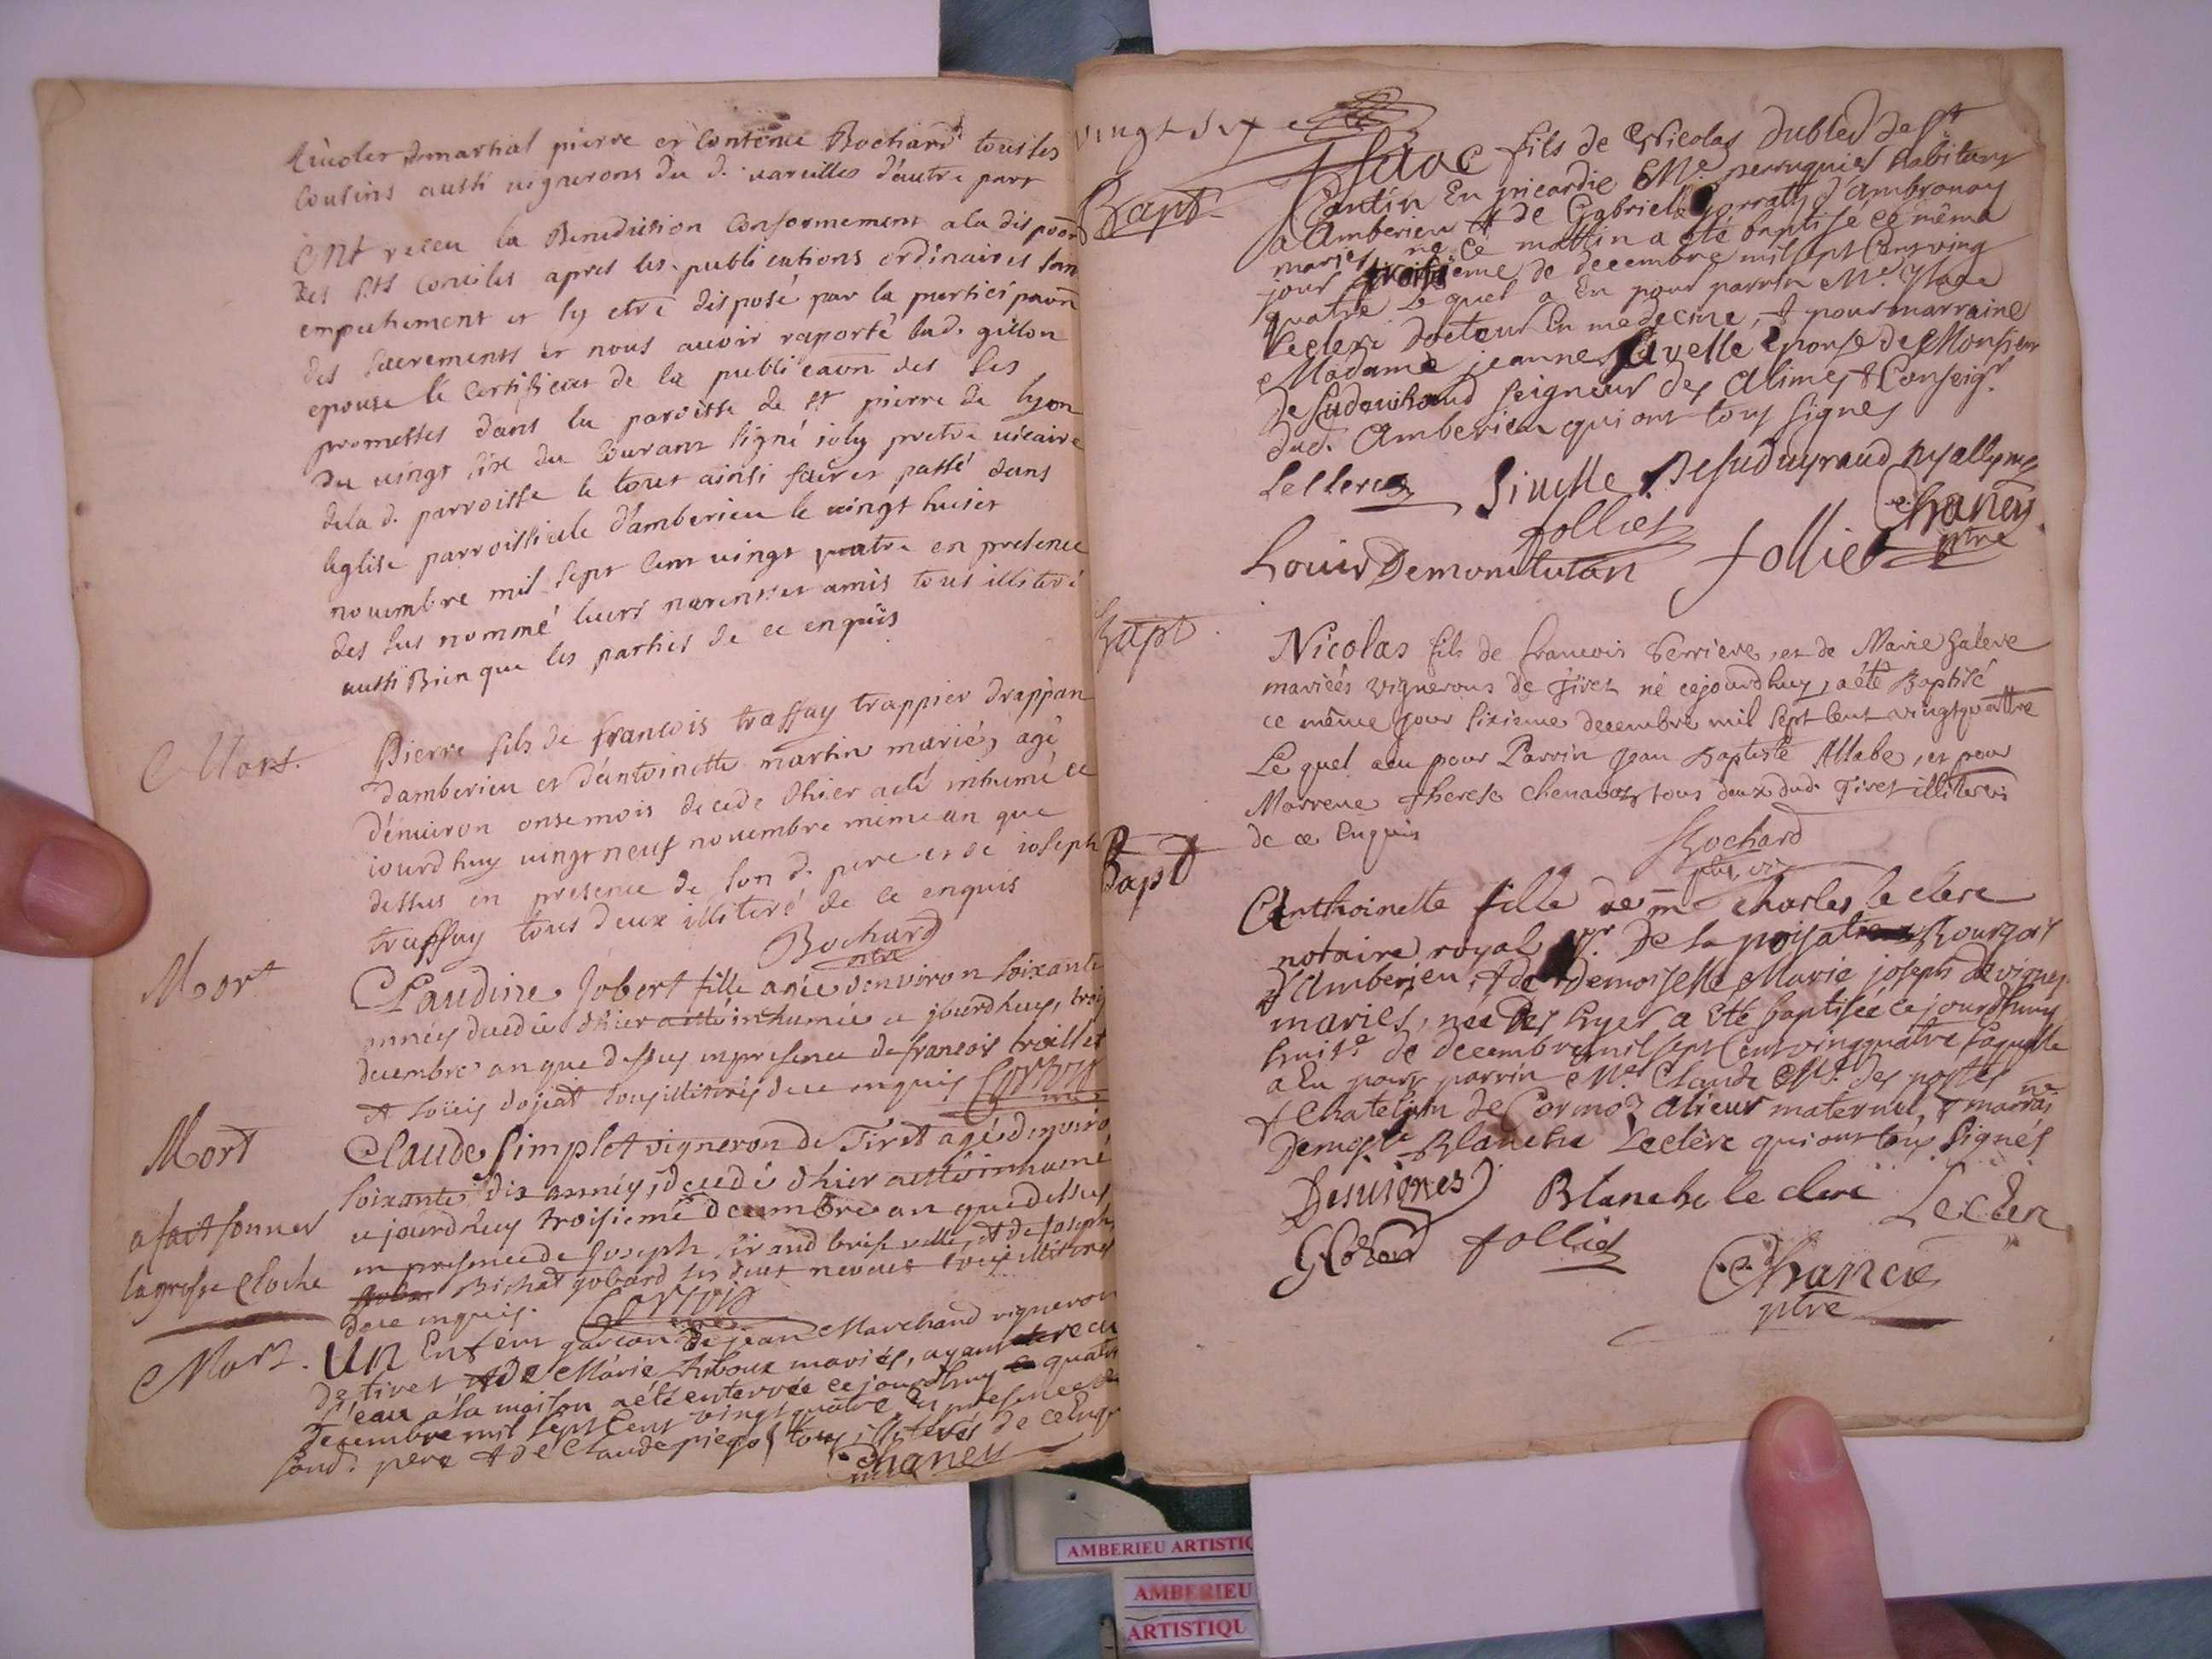 et martial pierre et Bochard tous les
cousins aussi vignerons du d. vareilles d'autre part
ont receu la Benediction conformement a la dispoon
des sts conciles apres les publications ordinaires san
empechement et sy etre disposé par la participaon
des sacrements et nous avoir raporté lad. gillon
epouse le certificat de la publicaon des ses
promesses dans la paroisse de st pierre de lyon
du vingt six du courant signé ioly pretre vicaire
dela d. parroisse le tout ainsi fait et passé dans
leglise parroissiale d'amberieu le vingt huict
novembre mil sept cent vingt quatre en presence
des sus nommé leurs parents et amis tous illiteré
aussi Bien que les parties de ce enquis
Mort.
Pierre fils de francois traffay trappier drappan
damberieu et d'antoinette martin mariés, agé
d'environ onse mois decede d'hier a eté inhumé ce
iourdhuy vingt neuf novembre meme an que
dessus en presence de son d. pere et de ioseph
traffay tous deux illiteré de ce enquis
Bochard
ptre
Mort
Claudine Jobert fille agée denviron soixante
années decedée dhier a esté inhumée ce jourdhuy, trois
decembre an que dessus en presence de francois troillet
et loüis dojat tous illiterés de ce enquis
Mort
a fait sonner
la grosse cloche
Claude simplot vigneron de Tiret agé denviro
soixante dix années, decedé dhier a esté inhumé
ce jourdhuy troisieme decembre an que dessus
en presence de Joseph et de Joseph
Bichat gobard ses deux neveux tous illiterés
de ce enquis.
Mort.
Un Enfent garcon de jean Marchand vigneron
de tiret et de Marie Riboux mariés, ayant receu
l'eau a la maison a été enterrée ce jourdhuy quatre
decembre mil sept Cent vingt quatre En presence de
sond. pere et de Claude tous illiterés de ce Enq.
Chaney
ptre
vingt six
Bapt
Isaac fils de Nicolas Dubled de St
Cantin En picardie Me. perruquier habitant
a Amberieu et de Gabriele d'ambronay
mariés né ce mattin a été baptisé ce même
jour troisieme de decembre mil sept Cent ving
quatre Lequel a Eu pour parrin Me. Isaac
Leclerc docteur En medecine, et pour marraine
Madame jeanne Sivelle Epouse de Monsieur
De seigneur des Alimes et Conseigr.
dud. Amberieu qui ont tous signes
Leclerc Sivelle
folliet
Chaney
ptre
Louis Demontluan folliet
Bapt
Nicolas fils de francois Perriere, et de Marie Galere
mariées vignerons de Tiret né cejourdhuy, a été Baptisé
ce même jour sixieme decembre mil sept cent vingtquattre
Lequel a eu pour Parrin Jean Baptiste Allabe, et pour
Marrene therese chenavaz tous deux dud. Tiret illiterés
de ce Enquis
Bochard
Bapt
Anthoinette fille de me charles le clerc
notaire royal De la Bourgois
d'Amberieu, et de Demoiselle Marie joseph Devignes
mariés, née Des hyer a été baptisée ce jourdhuy
huite. de decembre mil sept Cent vingquatre laquelle
a Eu pour parrin Me. Claude Me. des postes
et Chatelain de Cormoz aïeur maternel, et marrai
ne
Demoislle Blanche Leclerc qui ont tous signés
Desvignes Blanche le clerc Leclerc
folliet
Chancie
ptre
AMBERIEU ARTISTIQ
AMBERIEU
ARTISTIQU